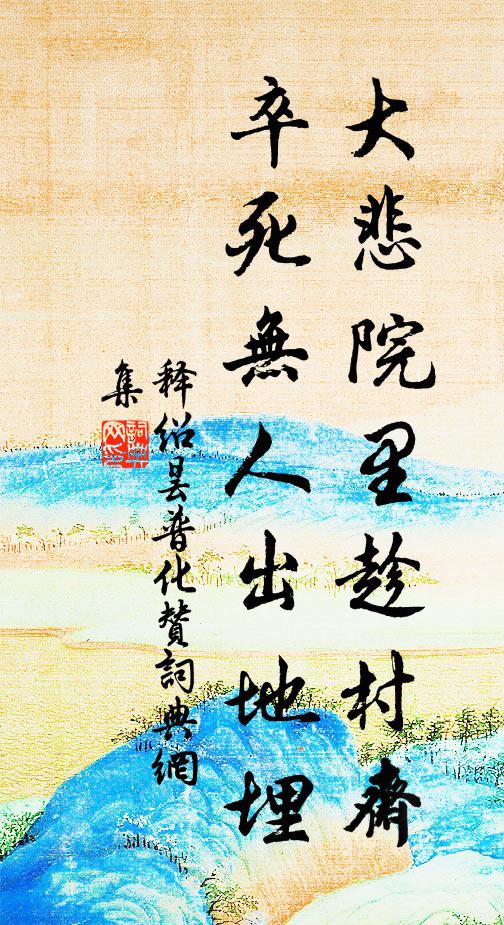 大悲院里趁村齋
卒死無人出地埋
释绍昙普化赞詞典網
集